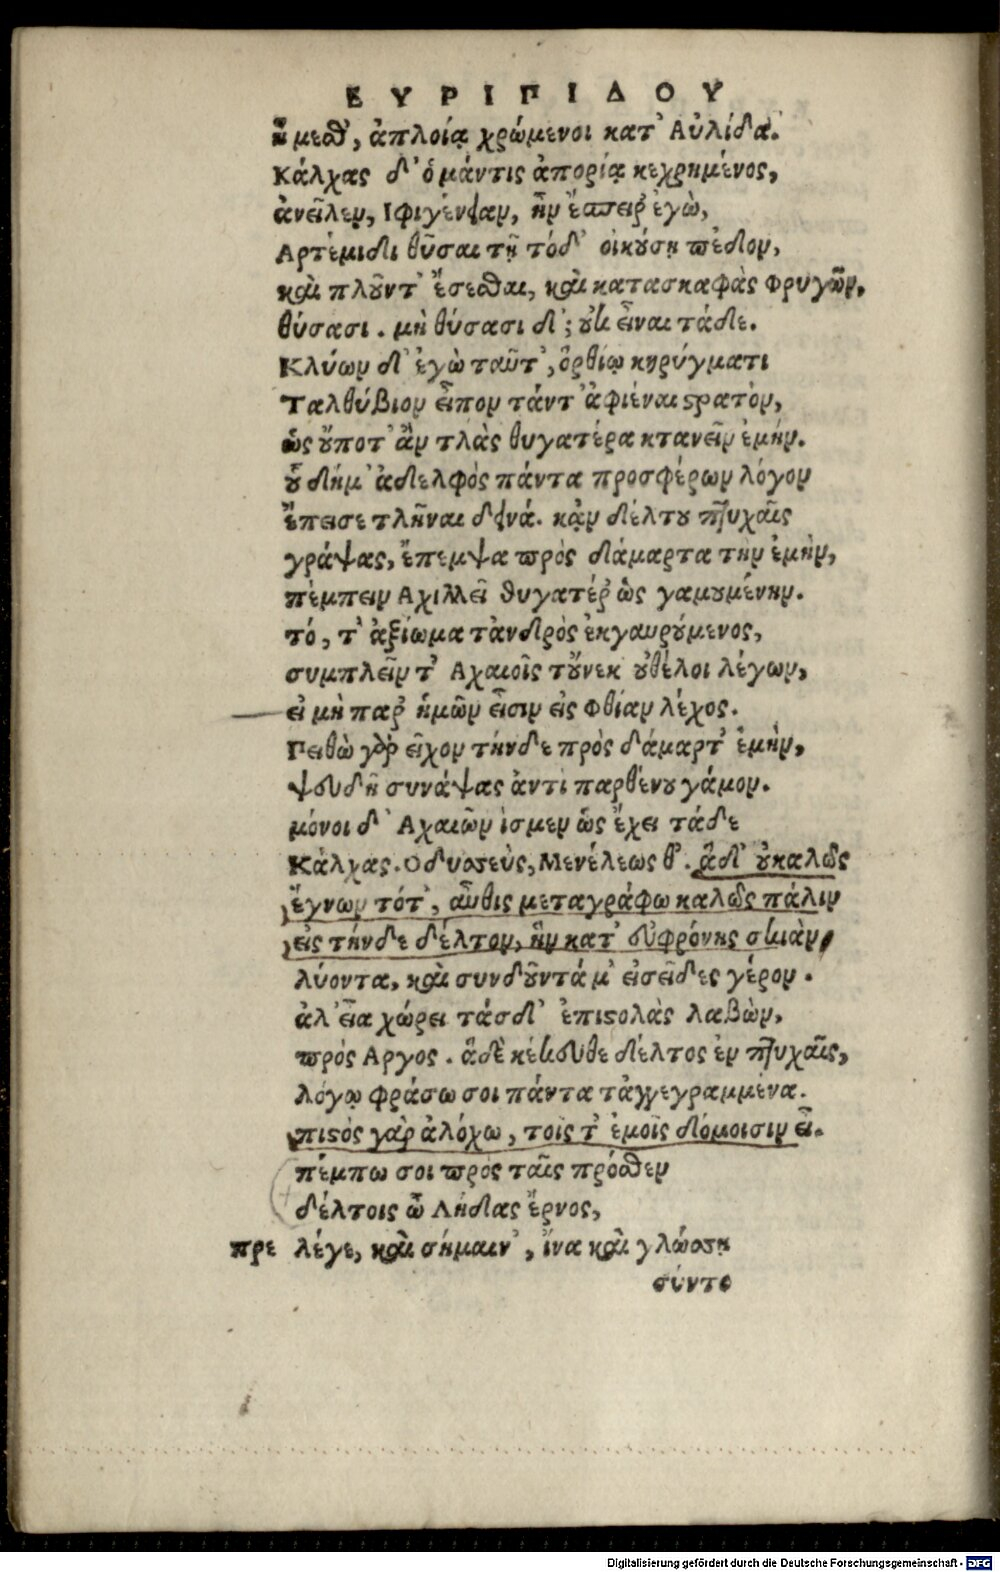 ΕΥΡΙΠΙΔΟΥ
ἥμεσθ', ἀπλοίᾳ χρώμενοι κατ' Αὐλίδα.
Κάλχας δ' ὁ μάντις ἀπορίᾳ κεχρημένος,
ἀνεῖλεν, Ιφιγένειαν, ἣν ἔσπειρ' ἐγὼ,
Αρτέμιδι θῦσαι τῇ τόδ' οἰκούσῃ πέδον,
καὶ πλοῦντ' ἔσεσθαι, καὶ κατασκαφὰς Φρυγῶν,
θύσασι. μὴ θύσασι δ'; οὐκ εἶναι τάδε.
Κλύων δ' ἐγὼ ταῦτ', ὀρθίῳ κηρύγματι
Ταλθύβιον εἶπον τάντ' ἀφιέναι στρατὸν,
ὡς οὔποτ' ἂν τλὰς θυγατέρα κτανεῖν ἐμήν.
οὗ δήμ' ἀδελφὸς πάντα προσφέρων λόγον
ἔπεισε τλῆναι δεινά. κᾀν δέλτου πτυχαῖς
γράψας, ἔπεμψα πρὸς δάμαρτα τὴν ἐμὴν,
πέμπειν Αχιλλεῖ θυγατέρ' ὡς γαμουμένην.
τό, τ' ἀξίωμα τἀνδρὸς ἐκγαυρούμενος,
συμπλεῖν τ' Αχαιοῖς τοὔνεκ οὐθέλοι λέγων,
εἰ μὴ παρ' ἡμῶν εἶσιν εἰς Φθίαν λέχος.
Πειθὼ γὰρ εἶχον τήνδε πρὸς δάμαρτ' ἐμὴν,
ψευδῆ συνάψας ἀντὶ παρθένου γάμον.
μόνοι δ' Αχαιῶν ἴσμεν ὡς ἔχει τάδε
Κάλχας. Οδυσσεὺς, Μενέλεως θ'. ἃ δ' οὐ καλῶς
ἔγνων τότ', αὖθις μεταγράφω καλῶς πάλιν
εἰς τήνδε δέλτον, ἣν κατ' εὐφρόνης σκιὰν
λύοντα, καὶ συνδοῦντά μ' εἰσεῖδες γέρον.
ἀλ' εἶα χώρει τάσδ' ἐπιστολὰς λαβὼν,
πρὸς Αργος. ἃ δὲ κέκευθε δέλτος ἐν πτυχαῖς,
λόγῳ φράσω σοι πάντα τἀγγεγραμμένα.
πιστὸς γὰρ ἀλόχω, τοῖς τ' ἐμοῖς δόμοισιν εἶ.
πέμπω σοι πρὸς ταῖς πρόσθεν
δέλτοις ὦ Λήδας ἔρνος,
πρε λέγε, καὶ σήμαιν', ἵνα καὶ γλώσσῃ
σύντο
Digitalisierung gefördert durch die Deutsche Forschungsgemeinschaft - DFG